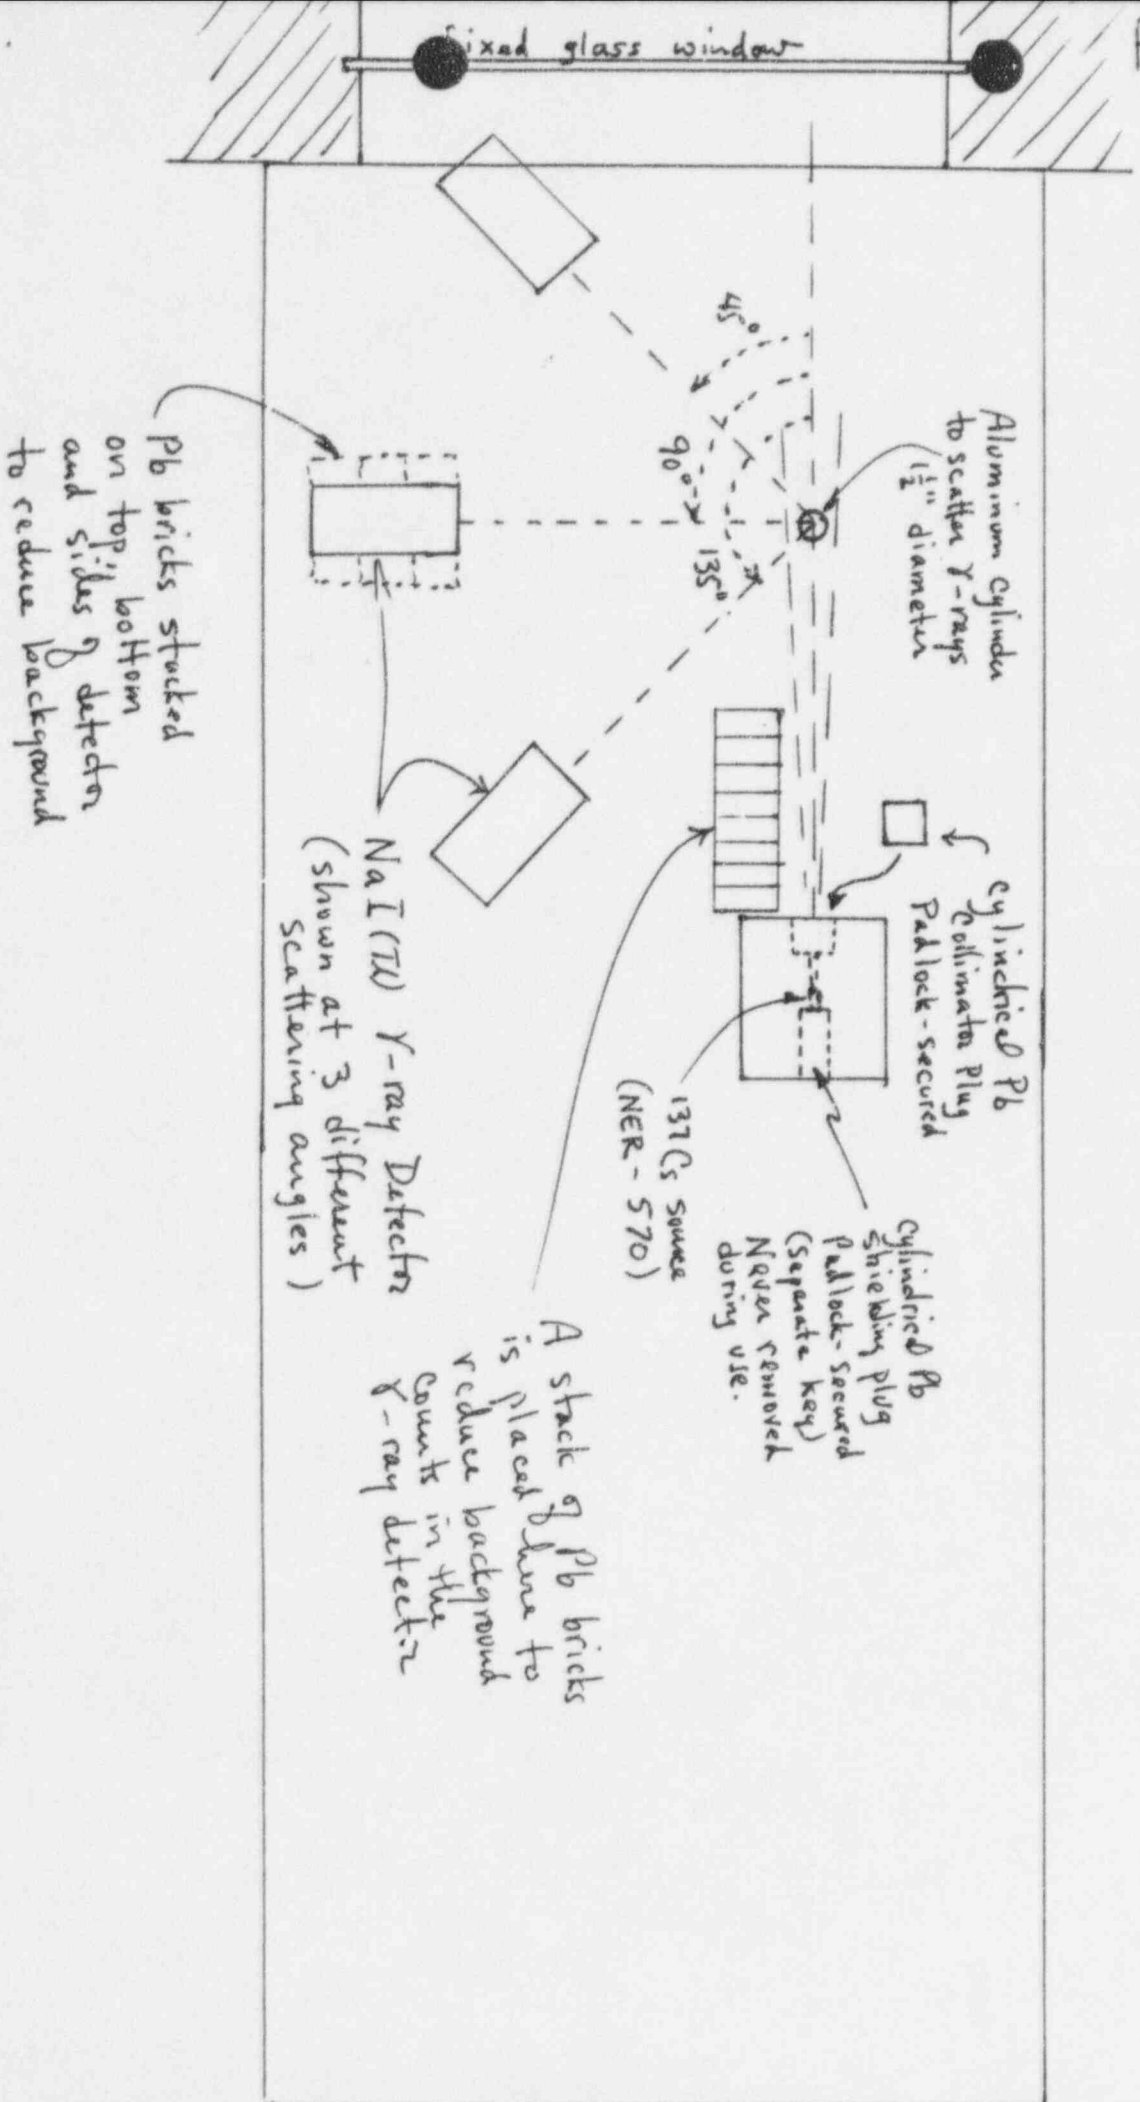 fixed glass window
45°
90°
135°
Aluminum cylinder
to scatter γ-rays
1½" diameter
Cylindrical Pb
Collimator Plug
Padlock-secured
Cylindrical Pb
shielding plug
Padlock-secured
(Separate key)
Never removed
during use.
137Cs source
(NER-570)
A stack of Pb bricks
is placed here to
reduce background
counts in the
γ-ray detector
NaI(Tl) γ-ray Detector
(shown at 3 different
scattering angles)
Pb bricks stacked
on top, bottom
and sides of detector
to reduce background